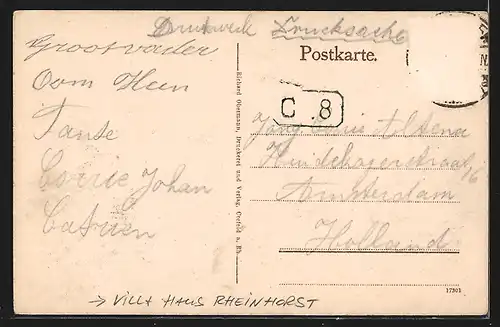 Drukwerk Drucksache
Postkarte.
Grootvader
Oom Hein
Tante
Corrie Johan
Catrien
C 8
Altena
Heidehagerstraat 16
Amsterdam
Holland
Richard Obermann, Druckerei und Verlag, Crefeld a. Rh.
17301
→ VILLA HAUS RHEINHORST